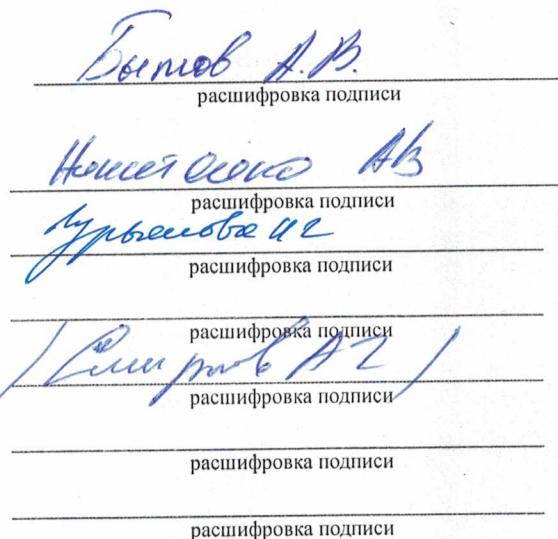 Бытов А.В.
расшифровка подписи
АВ
расшифровка подписи
Гурьянова ИГ
расшифровка подписи
расшифровка подписи
(Смирнов АГ)
расшифровка подписи
расшифровка подписи
расшифровка подписи